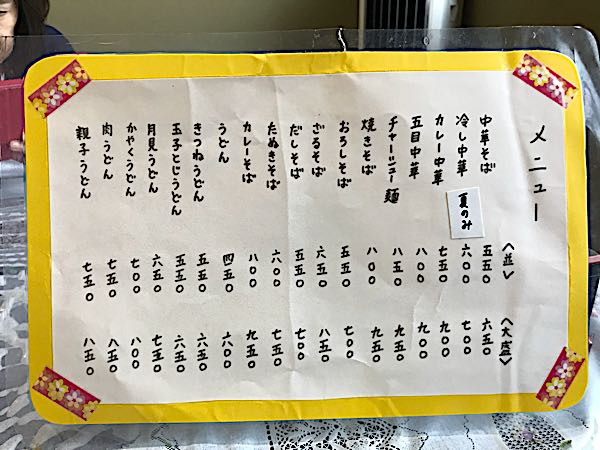 メニュー
〈並〉 〈大盛〉
中華そば 五五〇 六五〇
冷し中華 夏のみ 六〇〇 七〇〇
カレー中華 七五〇 九〇〇
五目中華 八〇〇 九〇〇
チャーシュー麺 八五〇 九五〇
焼きそば 八〇〇 九五〇
おろしそば 五五〇 七〇〇
ざるそば 六五〇 八五〇
だしそば 五五〇 七〇〇
たぬきそば 六〇〇 七五〇
カレーそば 八〇〇 九五〇
うどん 四五〇 六〇〇
きつねうどん 五五〇 六五〇
玉子とじうどん 五五〇 六五〇
月見うどん 六五〇 七五〇
かやくうどん 七〇〇 八〇〇
肉うどん 七五〇 八五〇
親子うどん 七五〇 八五〇